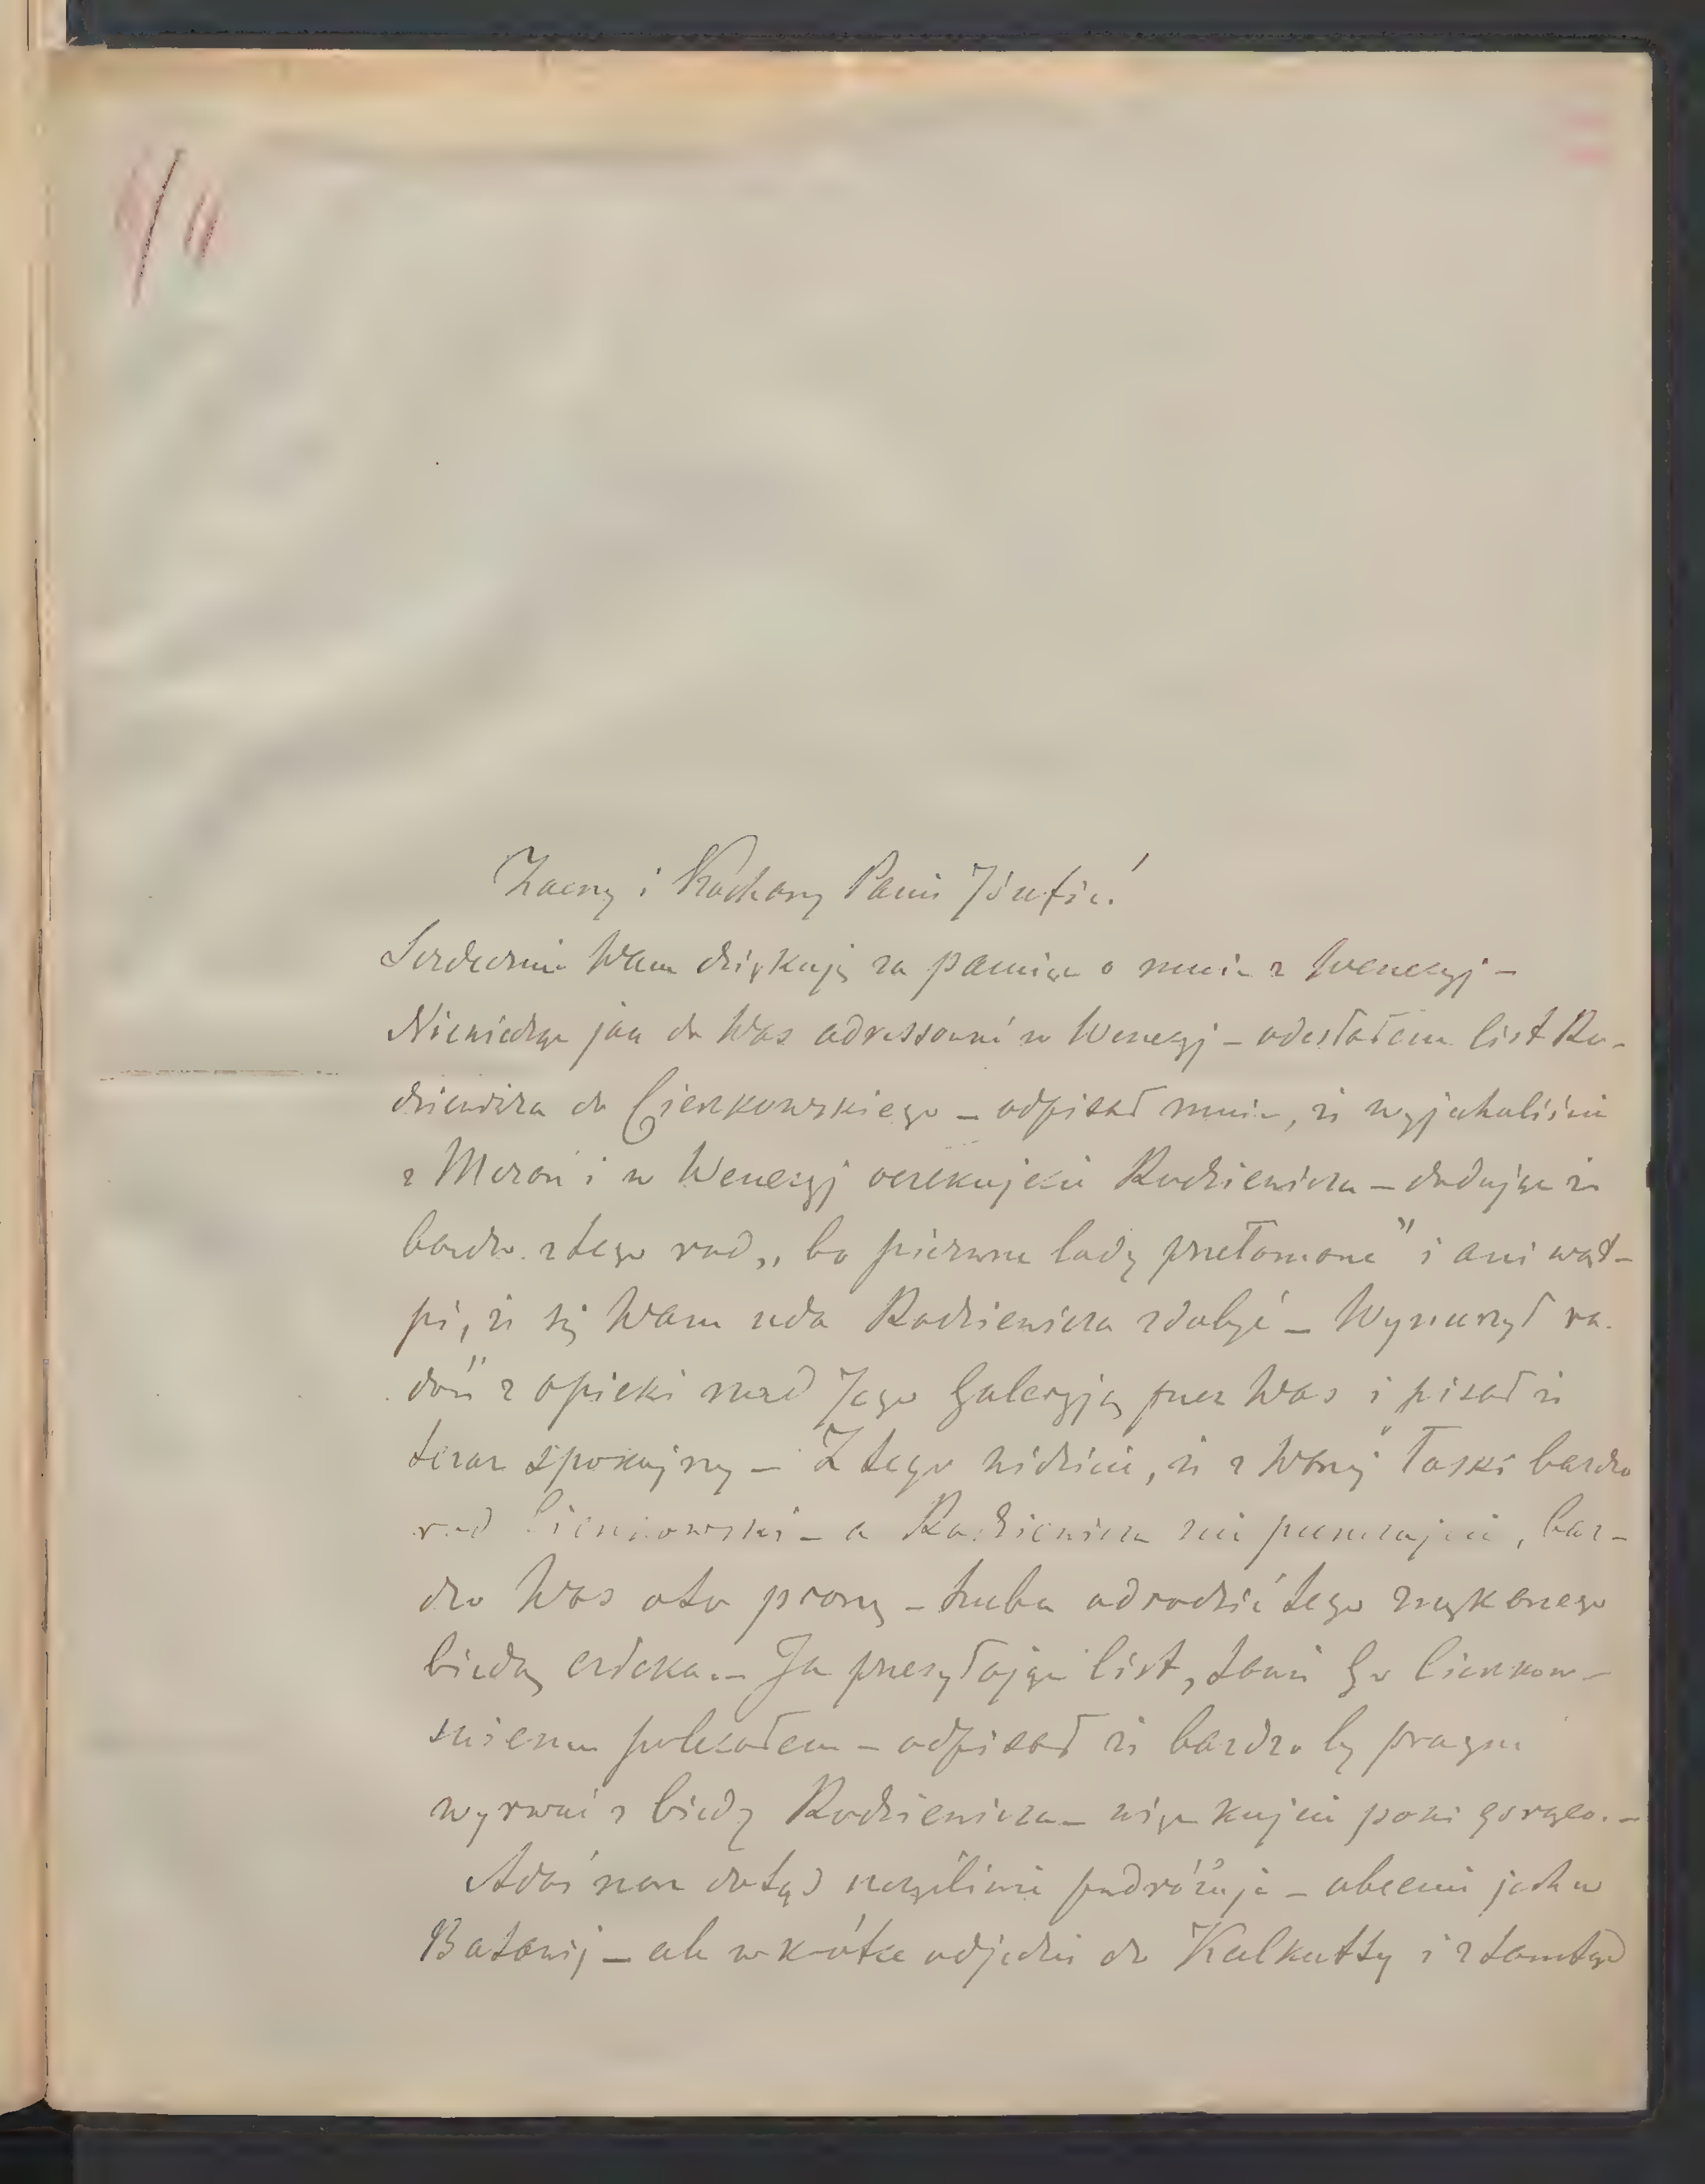 Zacny i Kochany Panie Józefie!
Serdecznie Wam dziękuję za pamięć o mnie z Wenecyj –
Niewiedząc jak do Was adressować w Wenecyj – odesłałem list Ro-
dziewicza do Cienkowskiego – odpisał mnie, iż wyjechaliście
z Meran i w Wenecyj oczekujecie Rodziewicza – dodając iż
bardzo z tego rad „bo pierwsze lody przełamane" i ani wąt-
pi, iż się Wam uda Rodziewicza zdobyć – Wynurzył ra-
dość z opieki nad Jego Galeryją przez Was i pisał iż
teraz spokojny – Z tego widzicie, iż z Waszej łaski bardzo
rad Cienkowski – a Rodziewicza nie porzucajcie, bar-
dzo Was oto proszę – trzeba odrodzić tego znękanego
biedą człeka. – Ja przesyłając list, także Go Cienkow-
skiemu polecałem – odpisał iż bardzo by pragnął
wyrwać z biedy Rodziewicza – więc kujcie póki gorąco. –
Adaś nasz dotąd szczęśliwie podróżuje – obecnie jest w
Batawij – ale wkrótce odjedzie do Kalkutty i ztamtąd